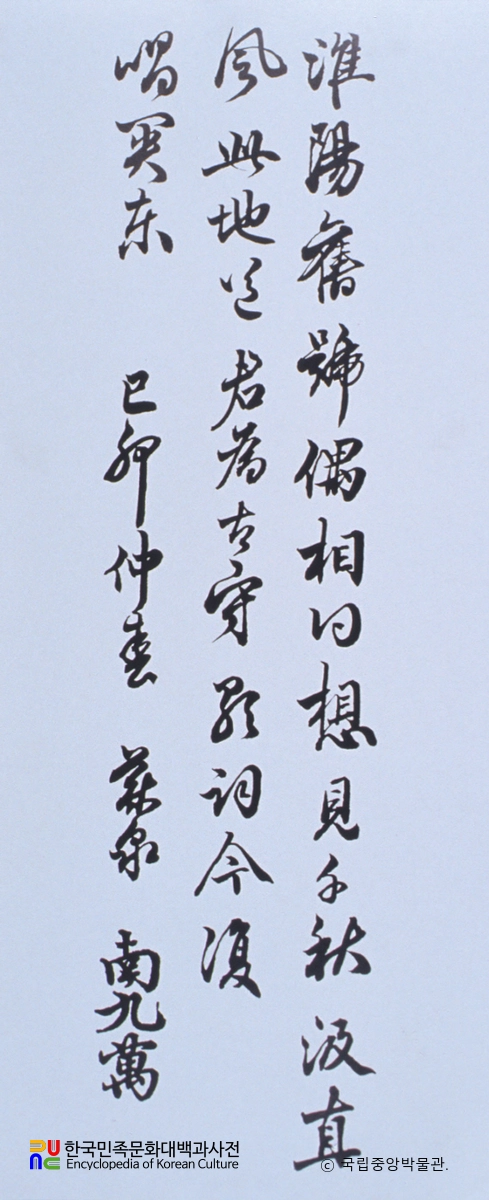 淮陽舊號偶相同想見千秋汲直
風此地送君為守歌詞今復
唱関東 己卯仲春 藥泉 南九萬
한국민족문화대백과사전
Encyclopedia of Korean Culture
© 국립중앙박물관.